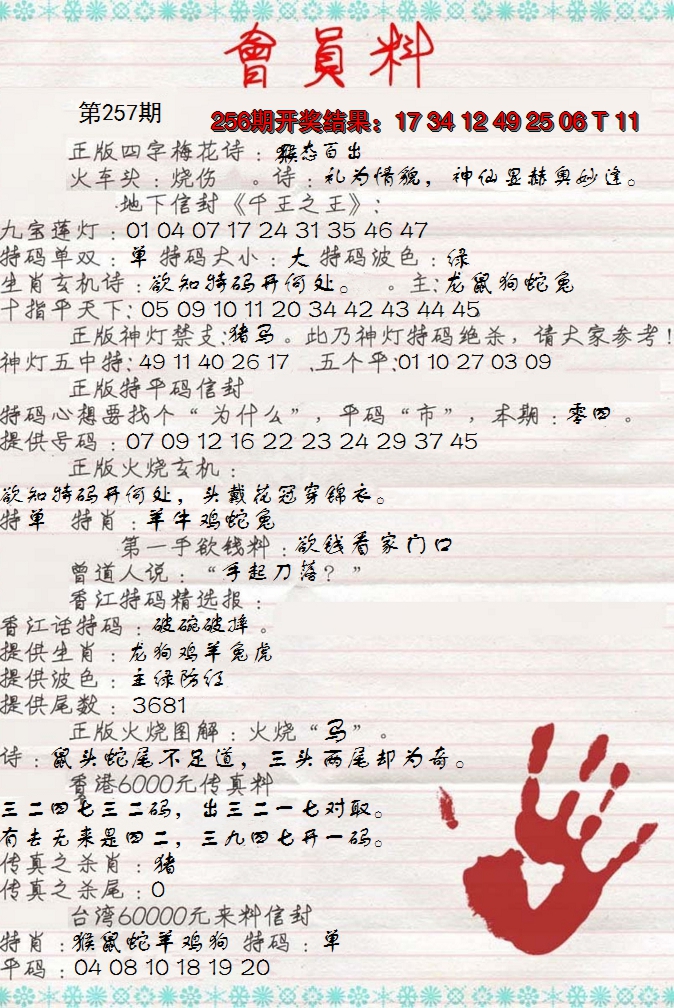 會員料
第257期
256期开奖结果：17 34 12 49 25 06 T 11
正版四字梅花诗：猴态百出
火车头：烧伤 。诗：礼为情貌，神仙显赫奥妙逢。
地下信封《千王之王》：
九宝莲灯：01 04 07 17 24 31 35 46 47
特码单双：单 特码大小：大 特码波色：绿
生肖玄机诗：欲知特码开何处。 。主：龙鼠狗蛇兔
十指平天下：05 09 10 11 20 34 42 43 44 45
正版神灯禁支：猪马。此乃神灯特码绝杀，请大家参考！
神灯五中特：49 11 40 26 17 .五个平：01 10 27 03 09
正版特平码信封
特码心想要找个“为什么”，平码“市”，本期：零四。
提供号码：07 09 12 16 22 23 24 29 37 45
正版火烧玄机：
欲知特码开何处，头戴花冠穿锦衣。
特单 特肖：羊牛鸡蛇兔
第一手欲钱料：欲钱看家门口
曾道人说：“手起刀落？”
香江特码精选报：
香江话特码：破碗破摔。
提供生肖：龙狗鸡羊兔虎
提供波色：主绿防红
提供尾数：3681
正版火烧图解：火烧“马”。
诗：鼠头蛇尾不足道，三头两尾却为奇。
香港6000元传真料
三二四七三二码，出三二一七对取。
有去无来是四二，三九四七开一码。
传真之杀肖：猪
传真之杀尾：0
台湾60000元来料信封
特肖：猴鼠蛇羊鸡狗 特码：单
平码：04 08 10 18 19 20